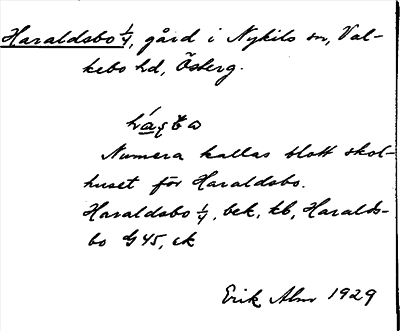 Haraldsbo 1/4, gård i Nykils sn, Val-
kebo hd, Österg.
Numera kallas blott skol-
huset för Haraldsbo.
Haraldsbo 1/4, bek. kb, Haralds-
bo G 45, ek
Erik Alm 1929